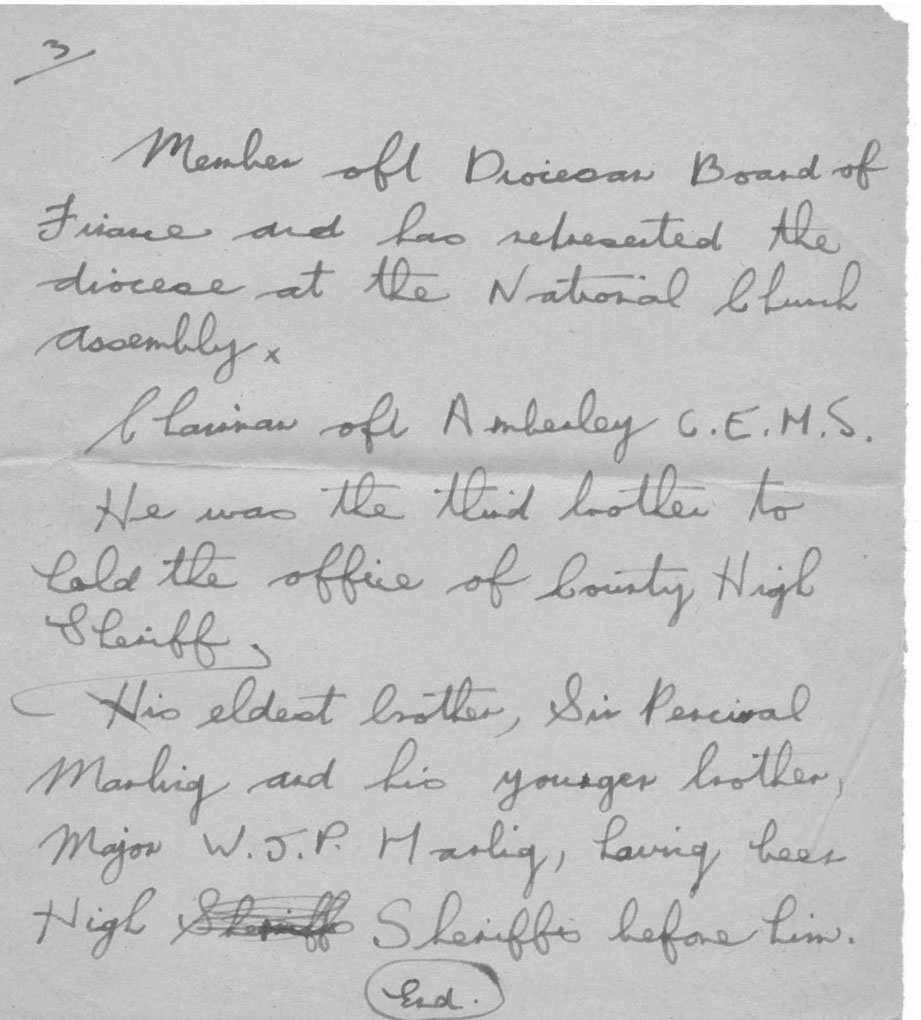 3
Member oft Diocesan Board of
Finance and has represented the
diocese at the National Church
Assembly x
Chairman oft Amberley C.E.M.S.
He was the third brother to
hold the office of County High
Sheriff,
His eldest brother, Sir Percival
Marling and his younger brother,
Major W.J.P. Marling, having been
High Sheriff Sheriffs before him.
End.